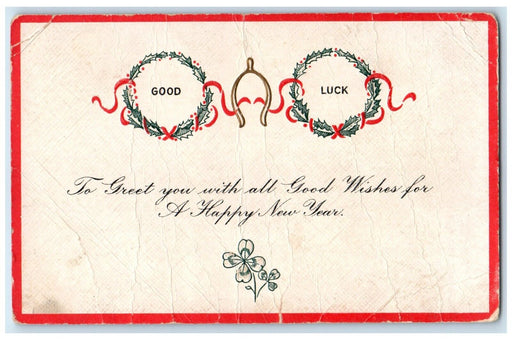 GOOD LUCK
To Greet you with all Good Wishes for
A Happy New Year.